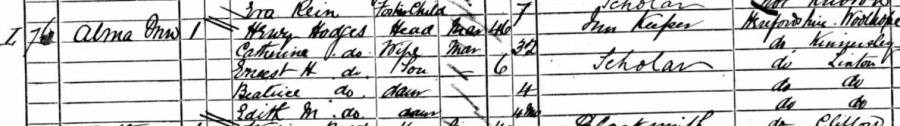 Eva Rein Foster Child 7 Scholar Not Known
76 Alma Inn 1 Henry Hodges Head Mar 46 Inn Keeper Herefordshire Woolhope
Catherine do. Wife Mar 32 do. Kinnersley
Ernest H. do. Son 6 Scholar do Linton
Beatrice do. daur 4 do do
Edith M. do. daur 4 Mo do do
Blacksmith do Clifford